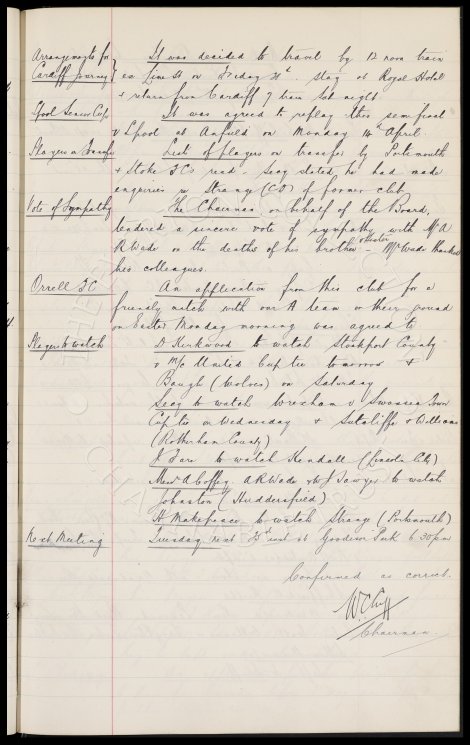 Arrangements for It was decided to travel by 12 noon train
Cardiff Journey ex Lime St on Friday stay at Royal Hotel
+ return from Cardiff 7 train Sat night.
Lpool Senior Cup It was agreed to replay this semi final
v Lpool at Anfield on Monday 14th April.
Players on Transfer List of players on transfer by Portsmouth
+ Stoke FCs read. Secy stated he had made
enquiries re Strange (CF) of former club
Vote of Sympathy The Chairman on behalf of the Board,
tendered a sincere vote of sympathy with Mr A
R Wade on the deaths of his brother + sister - Mr Wade thanked
his colleagues.
Orrell FC An application from this club for a
friendly match with our A team on their ground
on Easter Monday morning was agreed to
Players to watch D Kirkwood to watch Stockport County
v M/c United Cup tie tomorrow +
Baugh (Wolves) on Saturday
Secy to watch Wrexham v Swansea Town
Cup tie on Wednesday + Sutcliffe + Williams
(Rotherham County)
to watch Kendall (Lincoln City)
Messrs A Coffey A R Wade + W J Sawyer to watch
Johnston (Huddersfield)
H Makepeace to watch Strange (Portsmouth)
Next Meeting Tuesday next inst at Goodison Park 6.30pm
Confirmed as correct.
W. C. Cuff
Chairman.